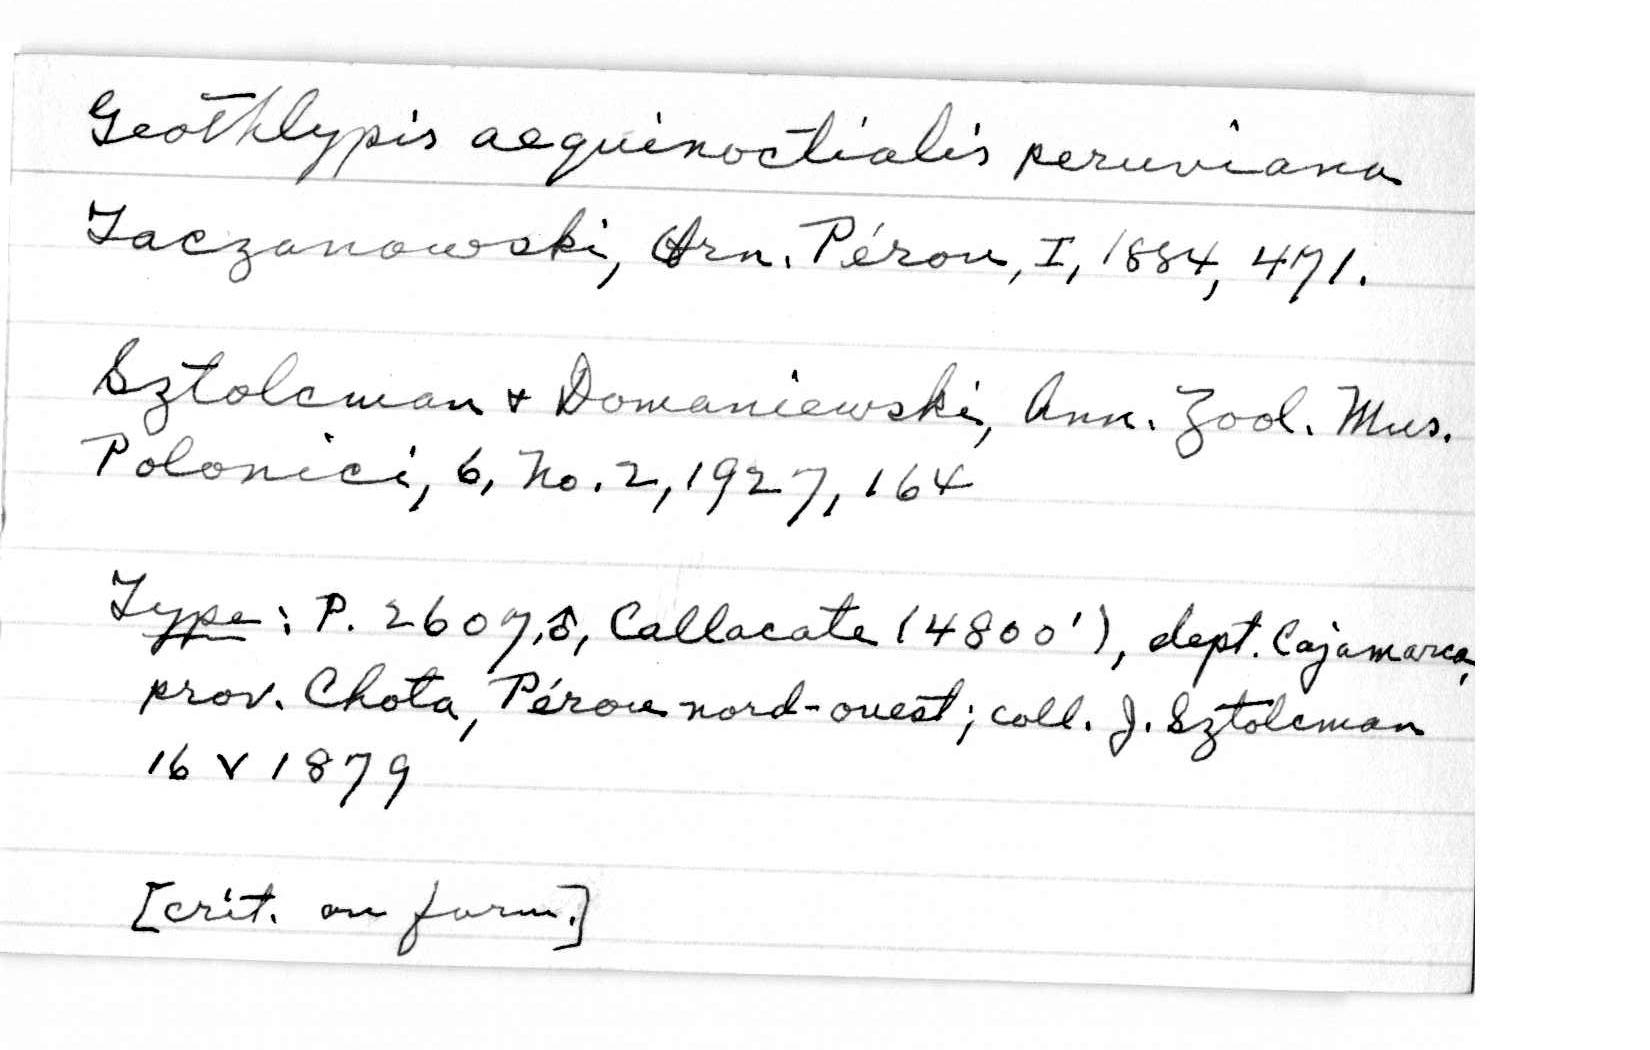 Geothlypis aequinoctialis peruviana
Taczanowski, Orn. Pérou, I, 1884, 471.
Sztolcman & Domaniewski, Ann. Zool. Mus.
Polonici, 6, No. 2, 1927, 164
Type: P. 2607, ♂, Callacate (4800'), dept. Cajamarca,
prov. Chota, Pérou nord-ouest; coll. J. Sztolcman
16 V 1879
[crit. on form.]